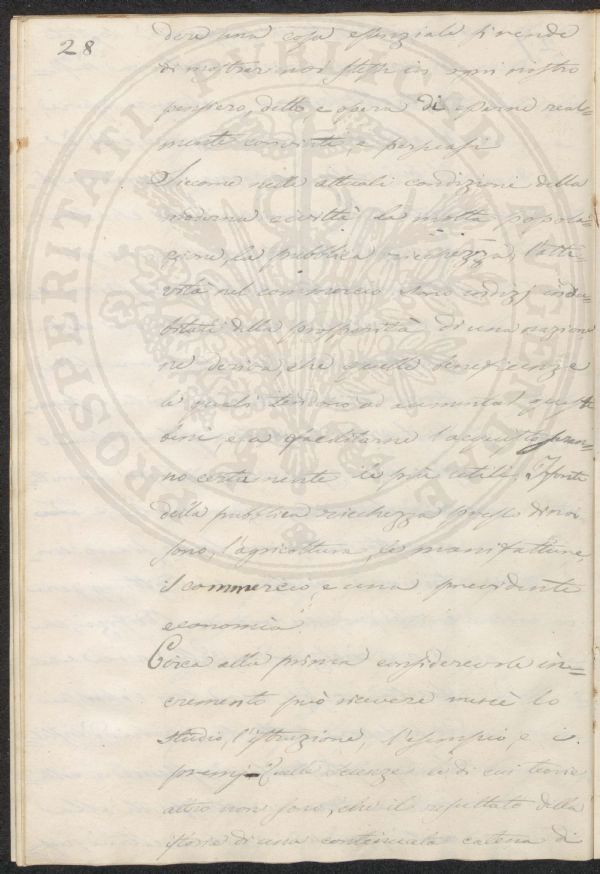 28
dere una cosa essenziale si rende
di mostrar noi stessi in ogni nostro
pensiero, detto, e opera di esserne real=
mente convinti, e persuasi
Siccome nelle attuali condizione della
moderna civiltà la molta popola=
zione, la pubblica ricchezza, l'atti=
vità nel commercio sono indizj indu=
bitati della prosperità di una nazione
ne deriva, che quelle beneficenze
le quali tendono ad aumentar questi
beni, e a facilitarne l'acquisto saran=
no certamente le più utili. I fonti
della pubblica ricchezza presso di noi
sono, l'agricoltura, le manifatture,
il commercio, e una previdente
economia.
Circa alla prima considerevole in=
cremento può ricevere mercè lo
studio, l'istruzione, l'esempio, e i
premj. Quelle scienze le di cui teorie
altro non sono, che il resultato della
storia di una continuata catena di
PROSPERITATI PUBLICAE AUGENDAE